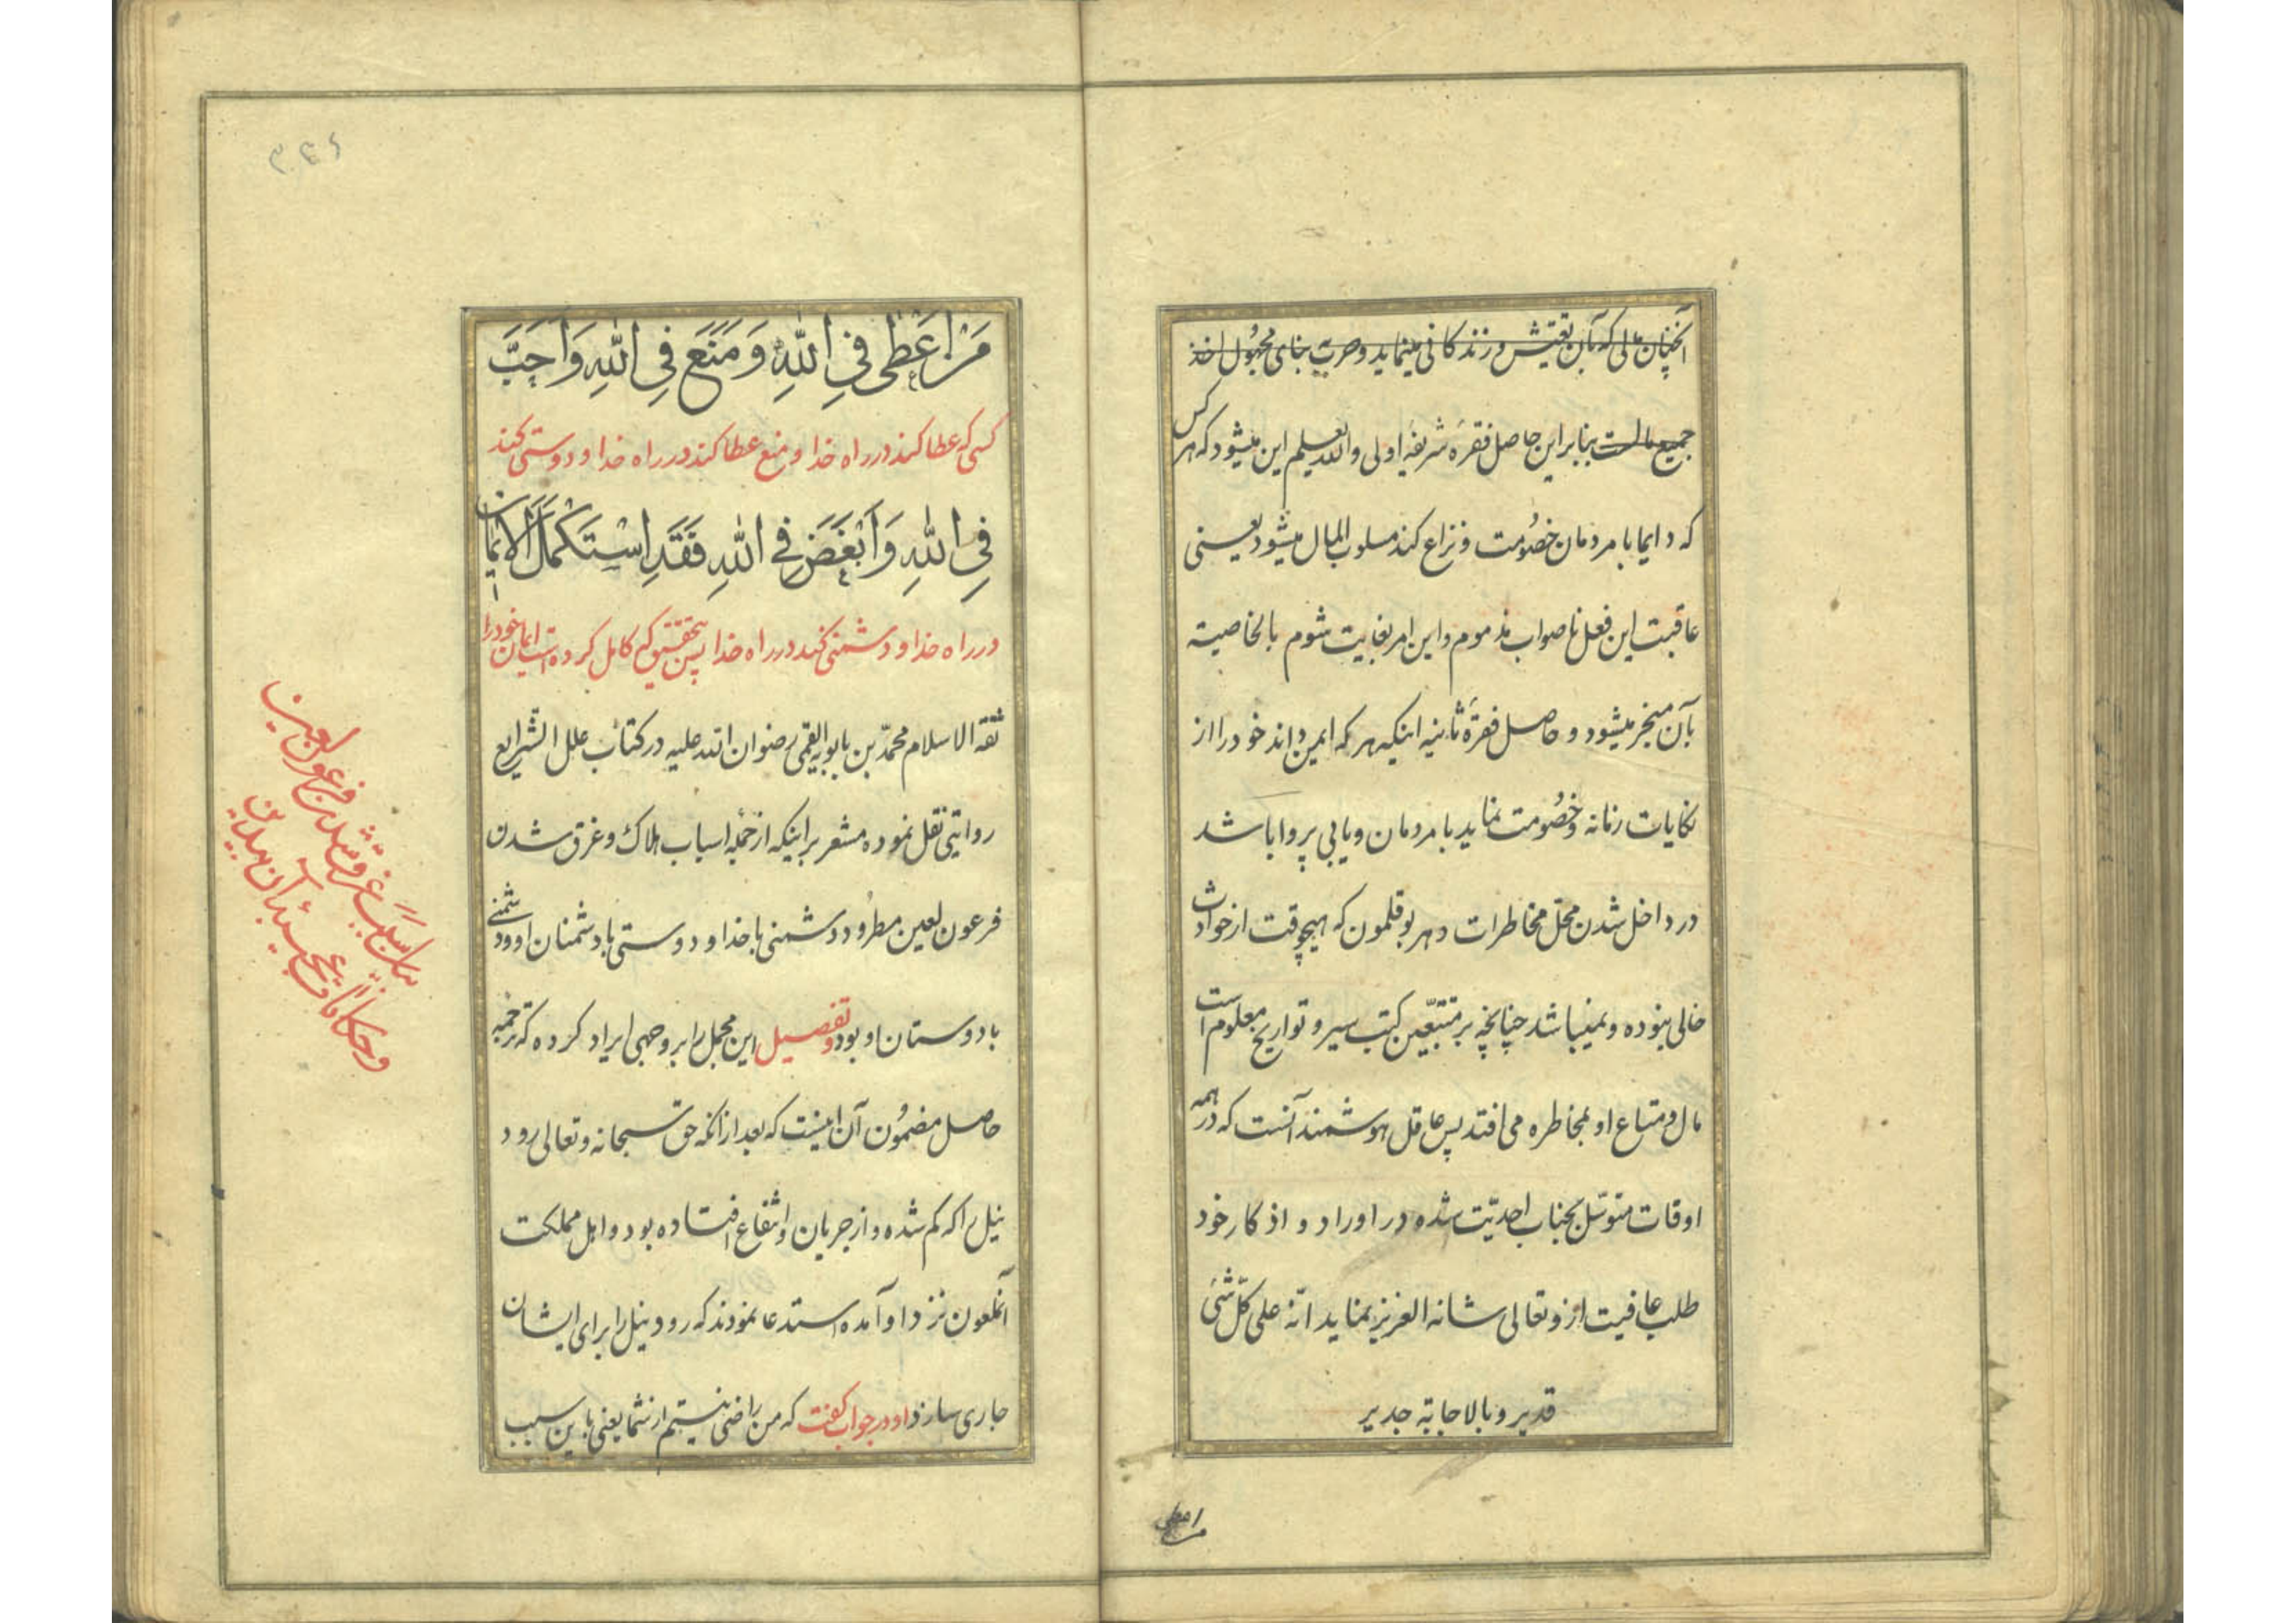 آنچنان مالی که بآن تعیّش و زندکانی مینماید و حرب بنای مجهول اخذ
جمیع مالست بنابراین حاصل فقرۀ شریفۀ اولی والله یعلم این میشود که هر کس
که دایما با مردمان خصُومت و نزاع کند مسلوب المال میشود یعنی
عاقبت این فعل ناصواب مذموم و این امر بغایت شوم بالخاصیة
بآن منجر میشود و حاصل فقرۀ ثانیه اینکه هر که ایمن داند خود را از
نکایات زمانه و خصُومت نماید با مردمان و یا بی پروا باشد
در داخل شدن محلّ مخاطرات دهر بوقلمون که هیچوقت از حوادث
خالی نبوده و نمیباشد چنانچه بر متتبّعین کتب سیر و تواریخ معلوم است
مال و متاع او بمخاطره می افتد پس عاقل هوشمند آنست که در همه
اوقات متوسّل بجناب احدیّت شده در اوراد و اذکار خود
طلب عافیت ازو تعالی شانه العزیز بنماید انّه علی کلّ شئ
قدیر و بالاجابة جدیر
من اعطی
۳۴۶
مَنْ اَعْطٰى فِى اللّٰهِ وَ مَنَعَ فِى اللّٰهِ وَ اَحَبَّ
کسی که عطا کند در راه خدا و منع عطا کند در راه خدا و دوستی کند
فِى اللّٰهِ وَ اَبْغَضَ فِى اللّٰهِ فَقَدِ اسْتَكْمَلَ الْاِيمَانَ
در راه خدا و دشمنی کند در راه خدا پس بتحقیق که کامل کرده است ایمان خود را
ثقه الاسلام محمّد بن بابویه القمی رضوان الله علیه در کتاب علل الشّرایع
روایتی نقل نموده مشعر بر اینکه از جمله اسباب هلاک و غرق شدن
فرعون لعین مطرُود دشمنی با خدا و دوستی با دشمنان او و دشمنی
با دوستان او بود و تفصیل این مجمل را بر وجهی ایراد کرده که ترجمه
حاصل مضمُون آن اینست که بعد از آنکه حق سبحانه و تعالی رود
نیل را که کم شده و از جریان و انتفاع افتاده بود و اهل مملکت
آنملعون نزد او آمده استدعا نمودند که رود نیل را برای ایشان
جاری سازد او در جواب کفت که من راضی نیستم از شما یعنی باین سبب
بیان سَبَب غرق شدن فرعون لعین
و حکایات عجیبۀ آن بیدین